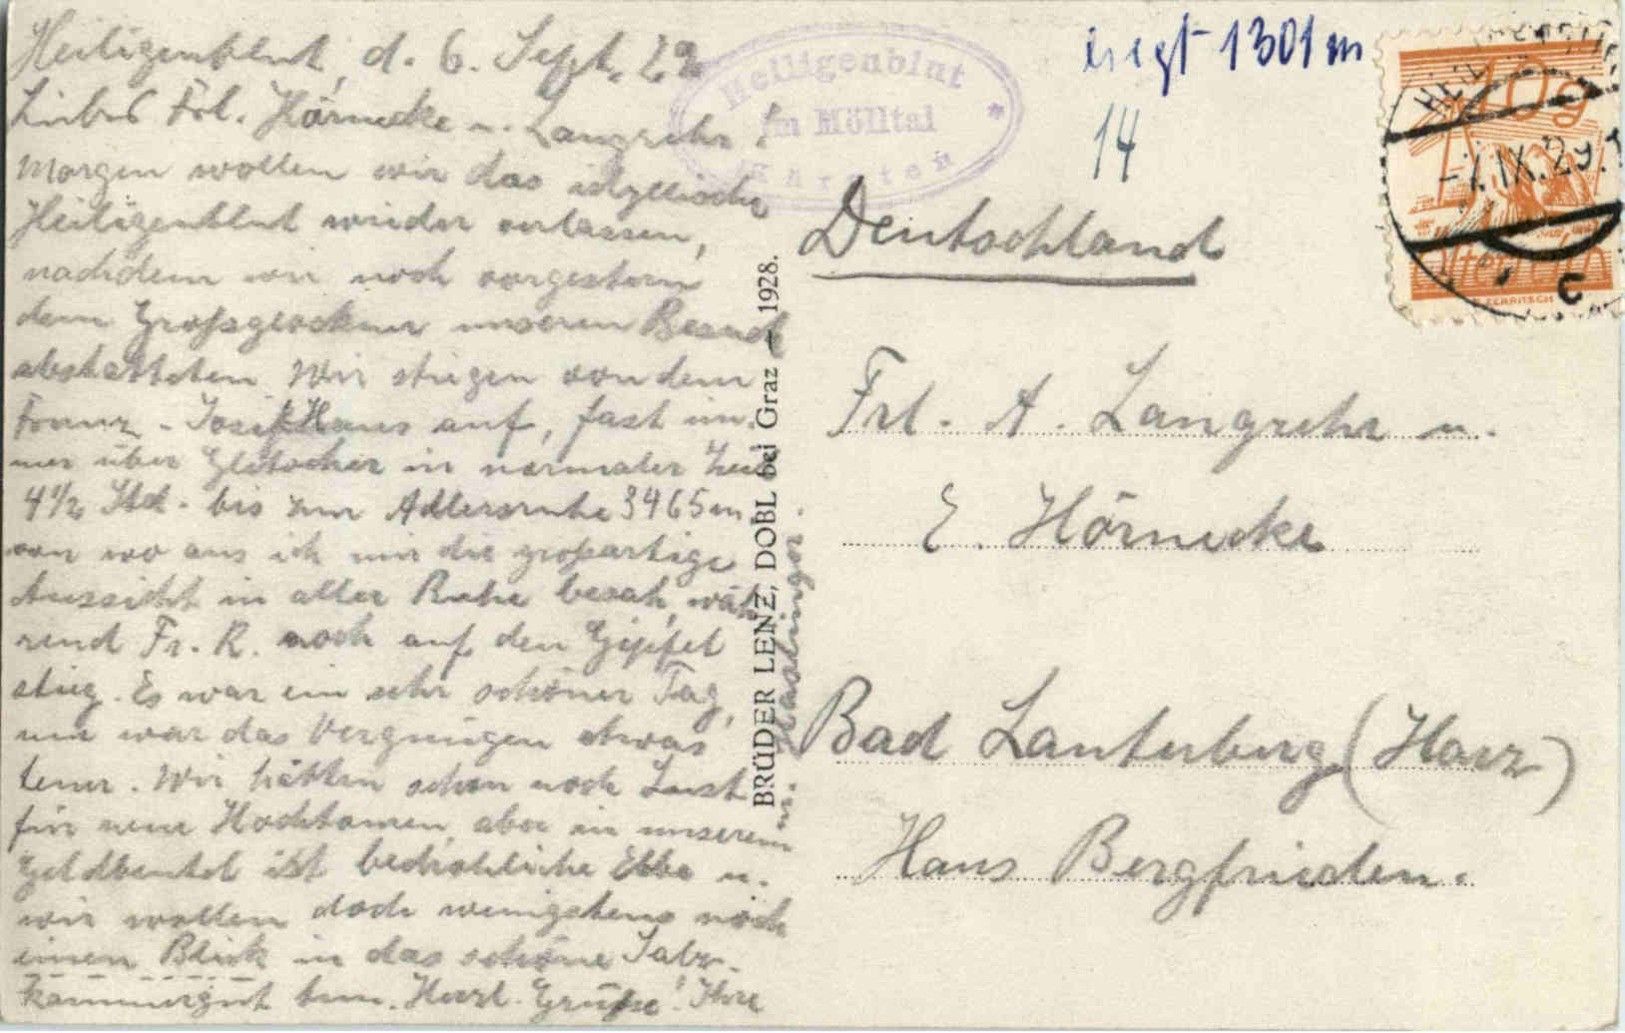 Heiligenblut, d. 6. Sept. 29
Liebes Frl. Hörnecke u. Langrehr!
Morgen wollen wir das idyllische
Heiligenblut wieder verlassen,
nachdem wir noch vorgestern
dem Großglockner unseren Besuch
abstatteten. Wir stiegen von dem
Franz-Josef Haus auf, fast im-
mer über Gletscher in normaler Zeit
4 1/2 Std. bis zur Adlersruhe 3465 m
von wo aus ich mir die großartige
Aussicht in aller Ruhe besah, wäh-
rend Fr. R. noch auf den Gipfel
stieg. Es war ein sehr schöner Tag,
nur war das Vergnügen etwas
teuer. Wir hätten schon noch Lust
für neue Hochtouren, aber in unserem
Geldbeutel ist bedrohliche Ebbe u.
wir wollen doch wenigstens noch
einen Blick in das schöne Salz-
kammergut tun. Herzl. Grüße! Ihre
Haslinger.
Heiligenblut
im Mölltal
* Kärnten *
liegt 1301 m
14
10g
-7.IX.29
Österreich
c
BRÜDER LENZ, DOBL bei Graz — 1928.
Deutschland
Frl. A. Langrehr u.
E. Hörnecke
Bad Lauterberg (Harz)
Haus Bergfrieden.